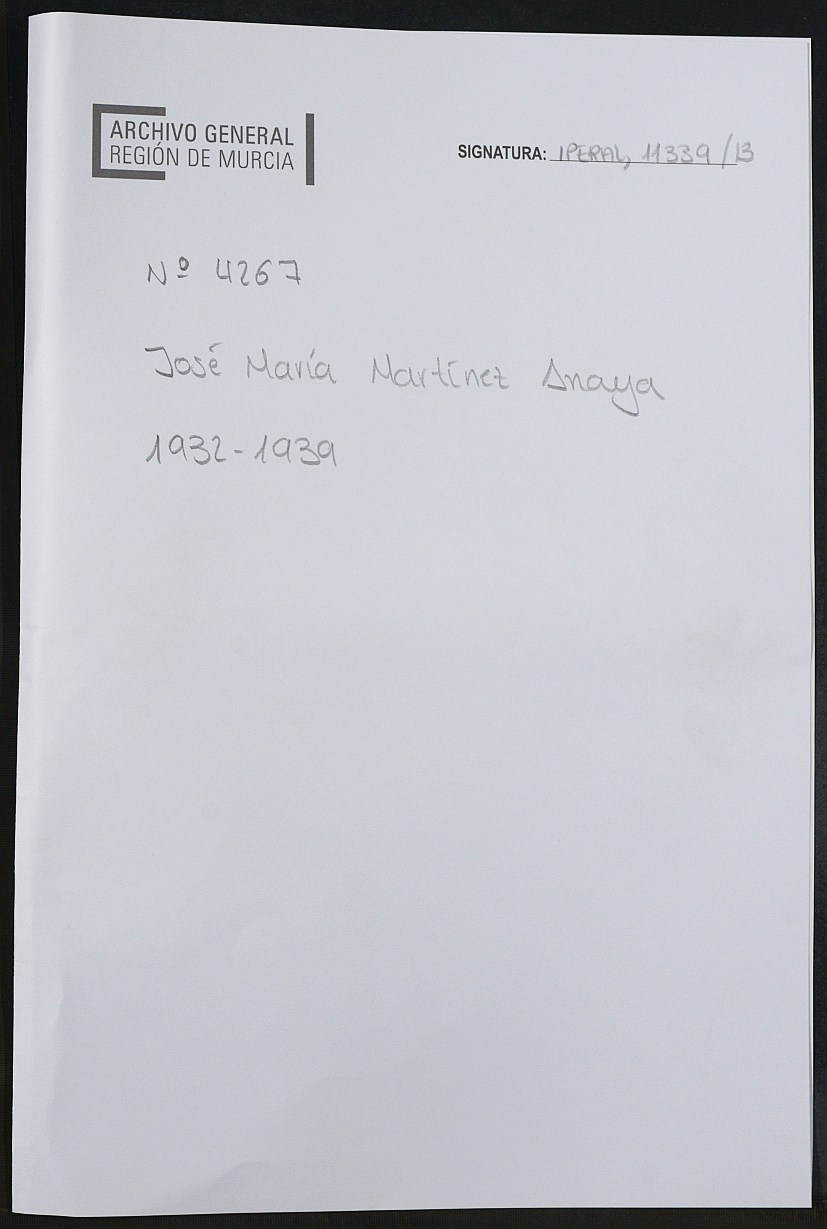 ARCHIVO GENERAL
REGIÓN DE MURCIA
SIGNATURA: IPERAL, 11339/13
Nº 4267
José María Martínez Anaya
1932-1939